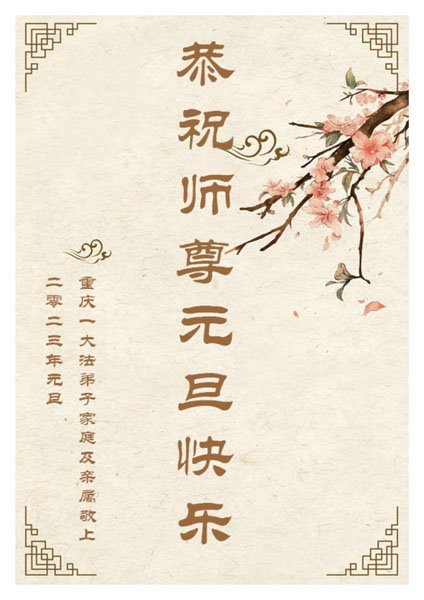 恭祝师尊元旦快乐
重庆一大法弟子家庭及亲属敬上
二零二三年元旦